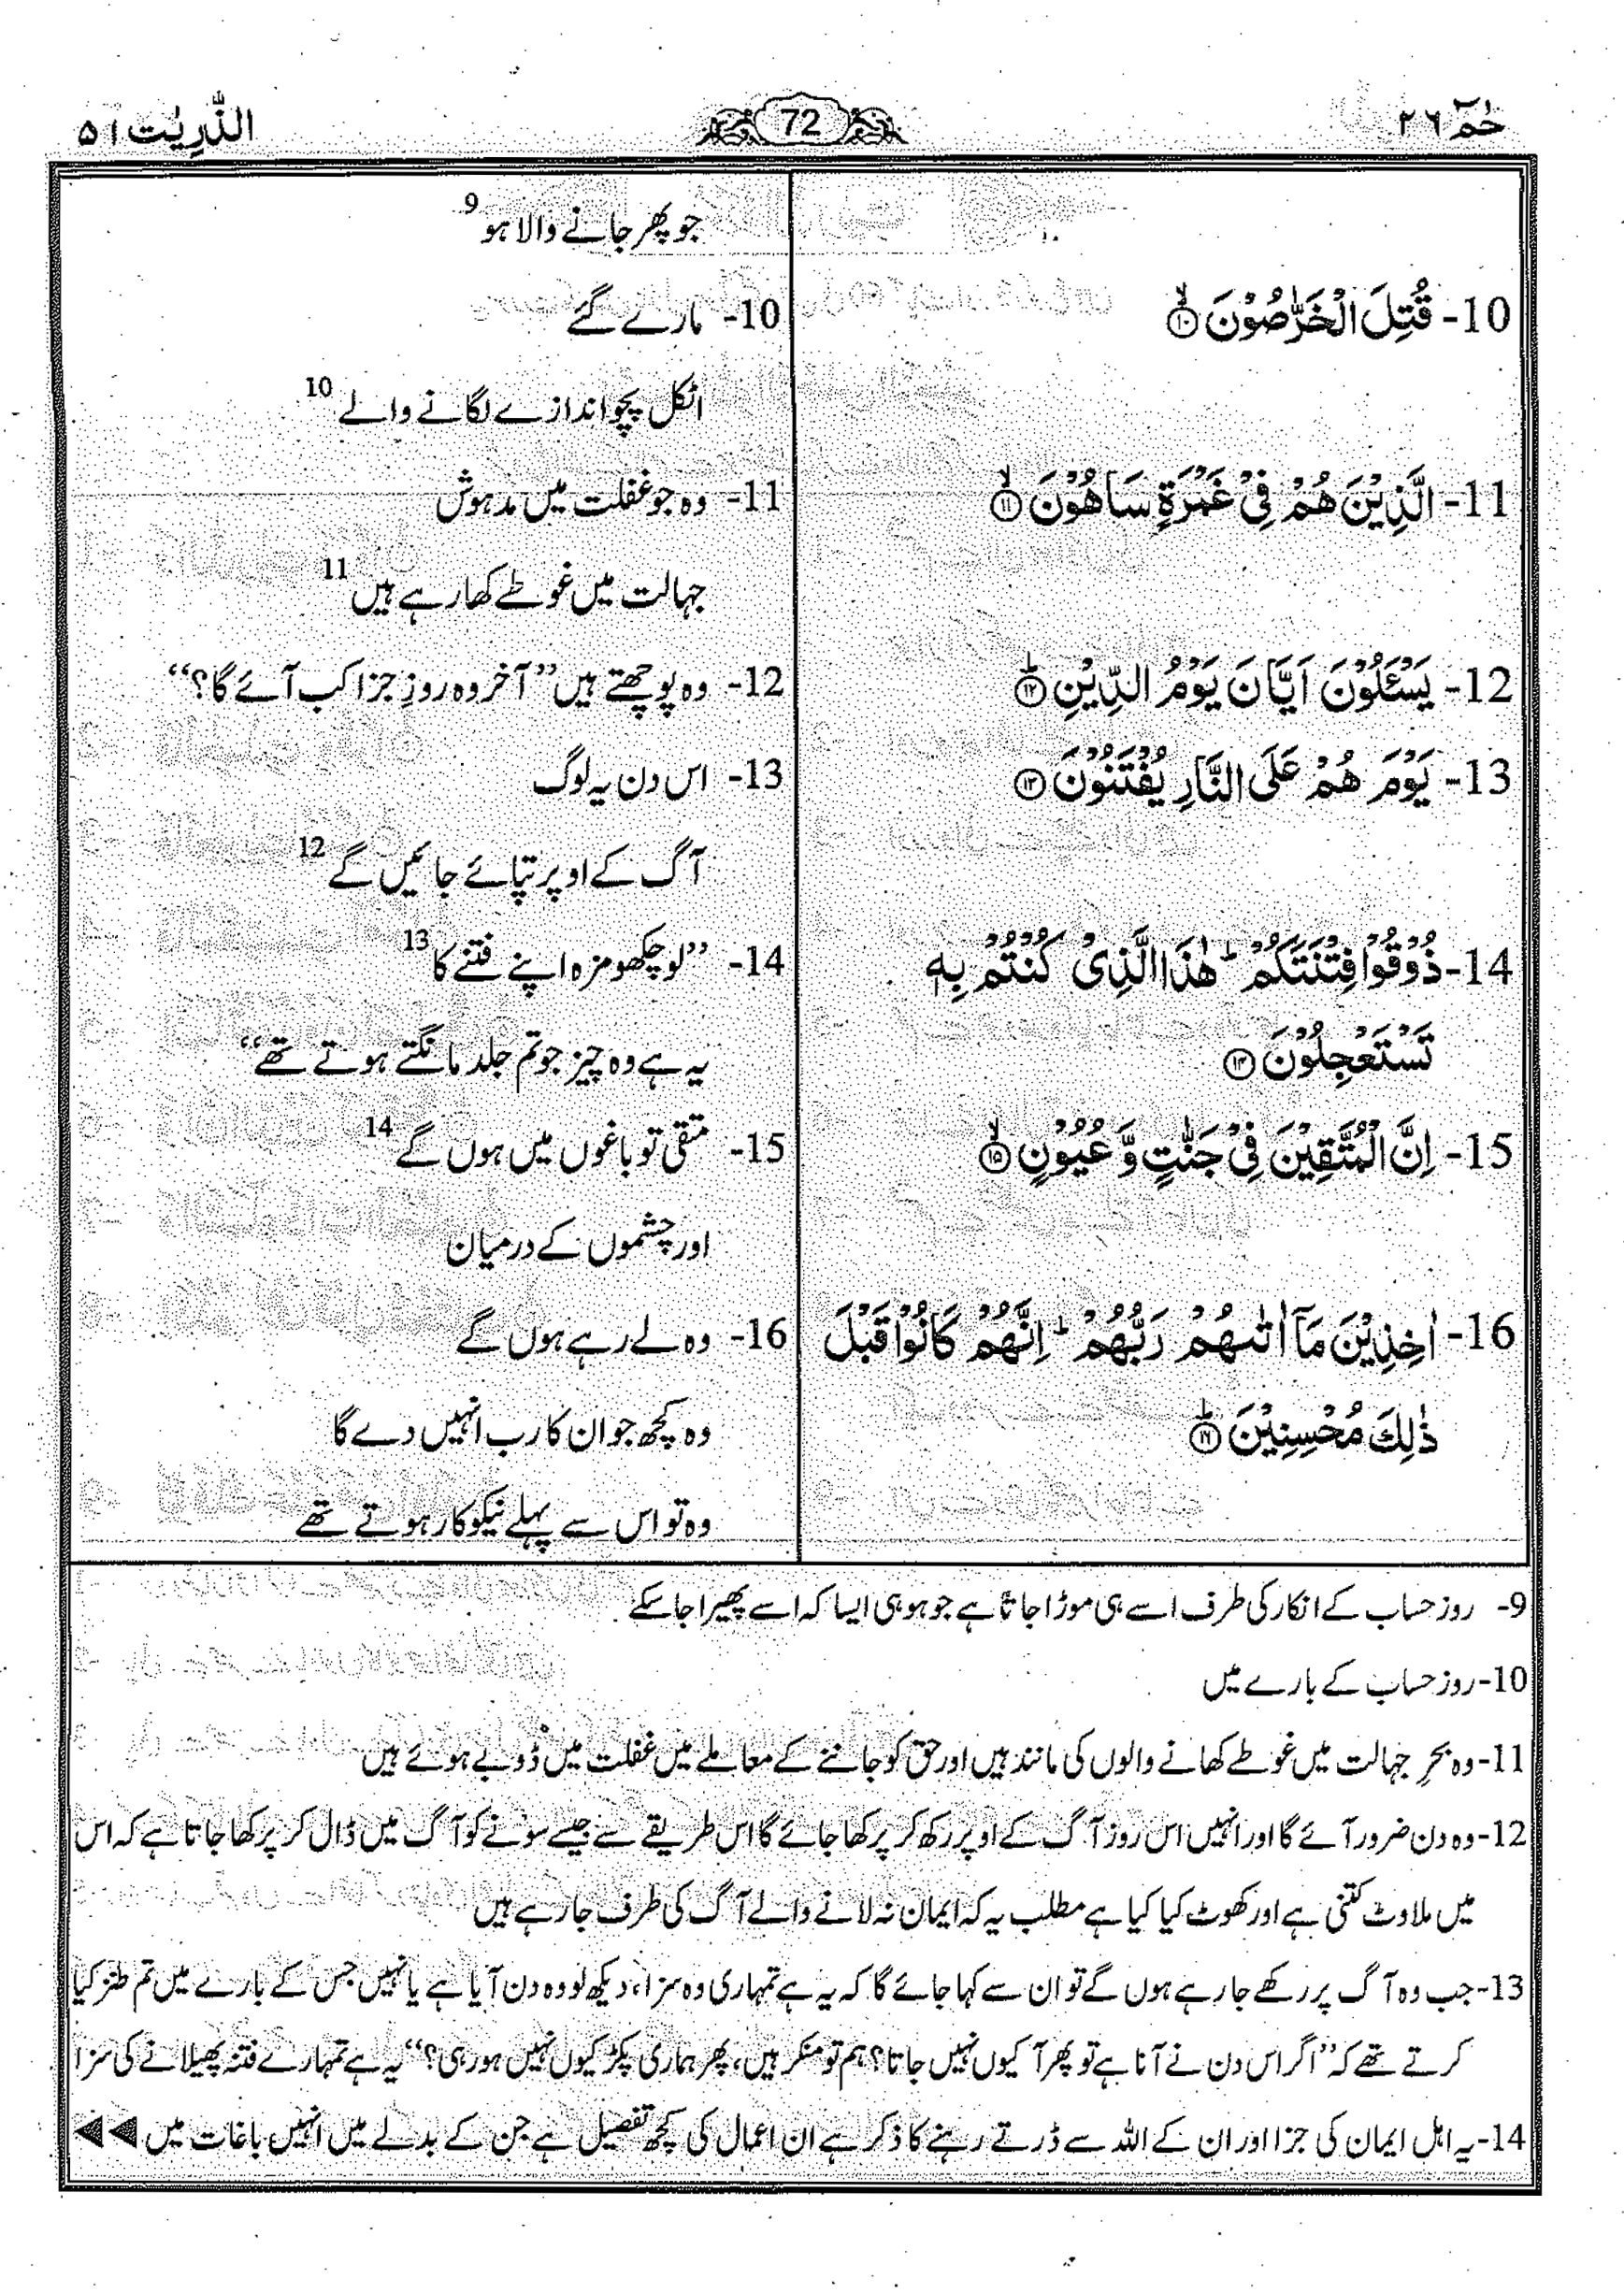 حٰمٓ ۲٦
72
الذّٰرِیٰت ۵۱
جو پھر جانے والا ہو 9
10- قُتِلَ الْخَرّٰصُوْنَ ۙ﴿۱۰﴾
10- مارے گئے
اٹکل پچو اندازے لگانے والے 10
11- الَّذِیْنَ هُمْ فِیْ غَمْرَةٍ سَاهُوْنَ ۙ﴿۱۱﴾
11- وہ جو غفلت میں مدہوش
جہالت میں غوطے کھا رہے ہیں 11
12- یَسْـَٔلُوْنَ اَیَّانَ یَوْمُ الدِّیْنِ ؕ﴿۱۲﴾
12- وہ پوچھتے ہیں ”آخر وہ روزِ جزا کب آئے گا؟“
13- یَوْمَ هُمْ عَلَی النَّارِ یُفْتَنُوْنَ ﴿۱۳﴾
13- اس دن یہ لوگ
آگ کے اوپر تپائے جائیں گے 12
14- ذُوْقُوْا فِتْنَتَكُمْ ؕ هٰذَا الَّذِیْ كُنْتُمْ بِهٖ
تَسْتَعْجِلُوْنَ ﴿۱۴﴾
14- ”لو چکھو مزہ اپنے فتنے کا 13
یہ ہے وہ چیز جو تم جلد مانگتے ہوتے تھے“
15- اِنَّ الْمُتَّقِیْنَ فِیْ جَنّٰتٍ وَّ عُیُوْنٍ ۙ﴿۱۵﴾
15- متقی تو باغوں میں ہوں گے 14
اور چشموں کے درمیان
16- اٰخِذِیْنَ مَاۤ اٰتٰىهُمْ رَبُّهُمْ ؕ اِنَّهُمْ كَانُوْا قَبْلَ
ذٰلِكَ مُحْسِنِیْنَ ؕ﴿۱۶﴾
16- وہ لے رہے ہوں گے
وہ کچھ جو ان کا رب انہیں دے گا
وہ تو اس سے پہلے نیکوکار ہوتے تھے
9- روز حساب کے انکار کی طرف اسے ہی موڑا جاتا ہے جو ہو ہی ایسا کہ اسے پھیرا جا سکے
10- روز حساب کے بارے میں
11- وہ بحرِ جہالت میں غوطے کھانے والوں کی مانند ہیں اور حق کو جاننے کے معاملے میں غفلت میں ڈوبے ہوئے ہیں
12- وہ دن ضرور آئے گا اور انہیں اس روز آگ کے اوپر رکھ کر پرکھا جائے گا اس طریقے سے جیسے سونے کو آگ میں ڈال کر پرکھا جاتا ہے کہ اس
میں ملاوٹ کتنی ہے اور کھوٹ کیا کیا ہے مطلب یہ کہ ایمان نہ لانے والے آگ کی طرف جا رہے ہیں
13- جب وہ آگ پر رکھے جا رہے ہوں گے تو ان سے کہا جائے گا کہ یہ ہے تمہاری وہ سزا، دیکھ لو وہ دن آیا ہے یا نہیں جس کے بارے میں تم طنز کیا
کرتے تھے کہ ”اگر اس دن نے آنا ہے تو پھر آ کیوں نہیں جاتا؟ ہم تو منکر ہیں، پھر ہماری پکڑ کیوں نہیں ہو رہی؟“ یہ ہے تمہارے فتنہ پھیلانے کی سزا
14- یہ اہل ایمان کی جزا اور ان کے اللہ سے ڈرتے رہنے کا ذکر ہے ان اعمال کی کچھ تفصیل ہے جن کے بدلے میں انہیں باغات میں ◄◄